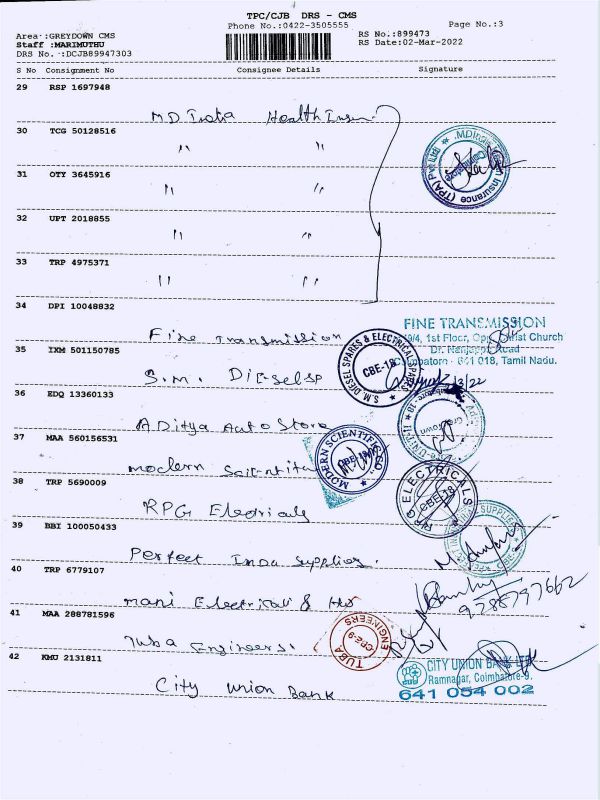 TPC/CJB DRS - CMS
Phone No.:0422-3505555
Page No.:3
Area :GREYDOWN CMS
Staff :MARIMUTHU
DRS No. :DCJB89947303
RS No.:899473
RS Date:02-Mar-2022
S No Consignment No Consignee Details Signature
29 RSP 1697948
MD India Health Insu
30 TCG 50128516
" "
31 OTY 3645916
" "
32 UPT 2018855
" "
33 TRP 4975371
" "
34 DPI 10048832
Fine Transmission
FINE TRANSMISSION
1st Floor, Opp. Christ Church
Dr. Nanjappa Road
Coimbatore - 641 018, Tamil Nadu.
35 IXM 501150785
S.M. Diesel sp
S.M. DIESEL SPARES & ELECTRICAL
CBE-18
36 EDQ 13360133
ADitya Auto Store
37 MAA 560156531
modern Scientific
MODERN SCIENTIFIC CO
38 TRP 5690009
RPG Electricals
RPG ELECTRICALS
CBE-18
39 BBI 100050433
Perfect Indu Supplies.
40 TRP 6779107
mani Electricals & Hw
9288797662
41 MAA 288781596
Tuba Engineers.
TUBA ENGINEERS
CBE-9
42 KMU 2131811
City Union Bank
CITY UNION BANK LTD
Ramnagar, Coimbatore-9.
641 054 002